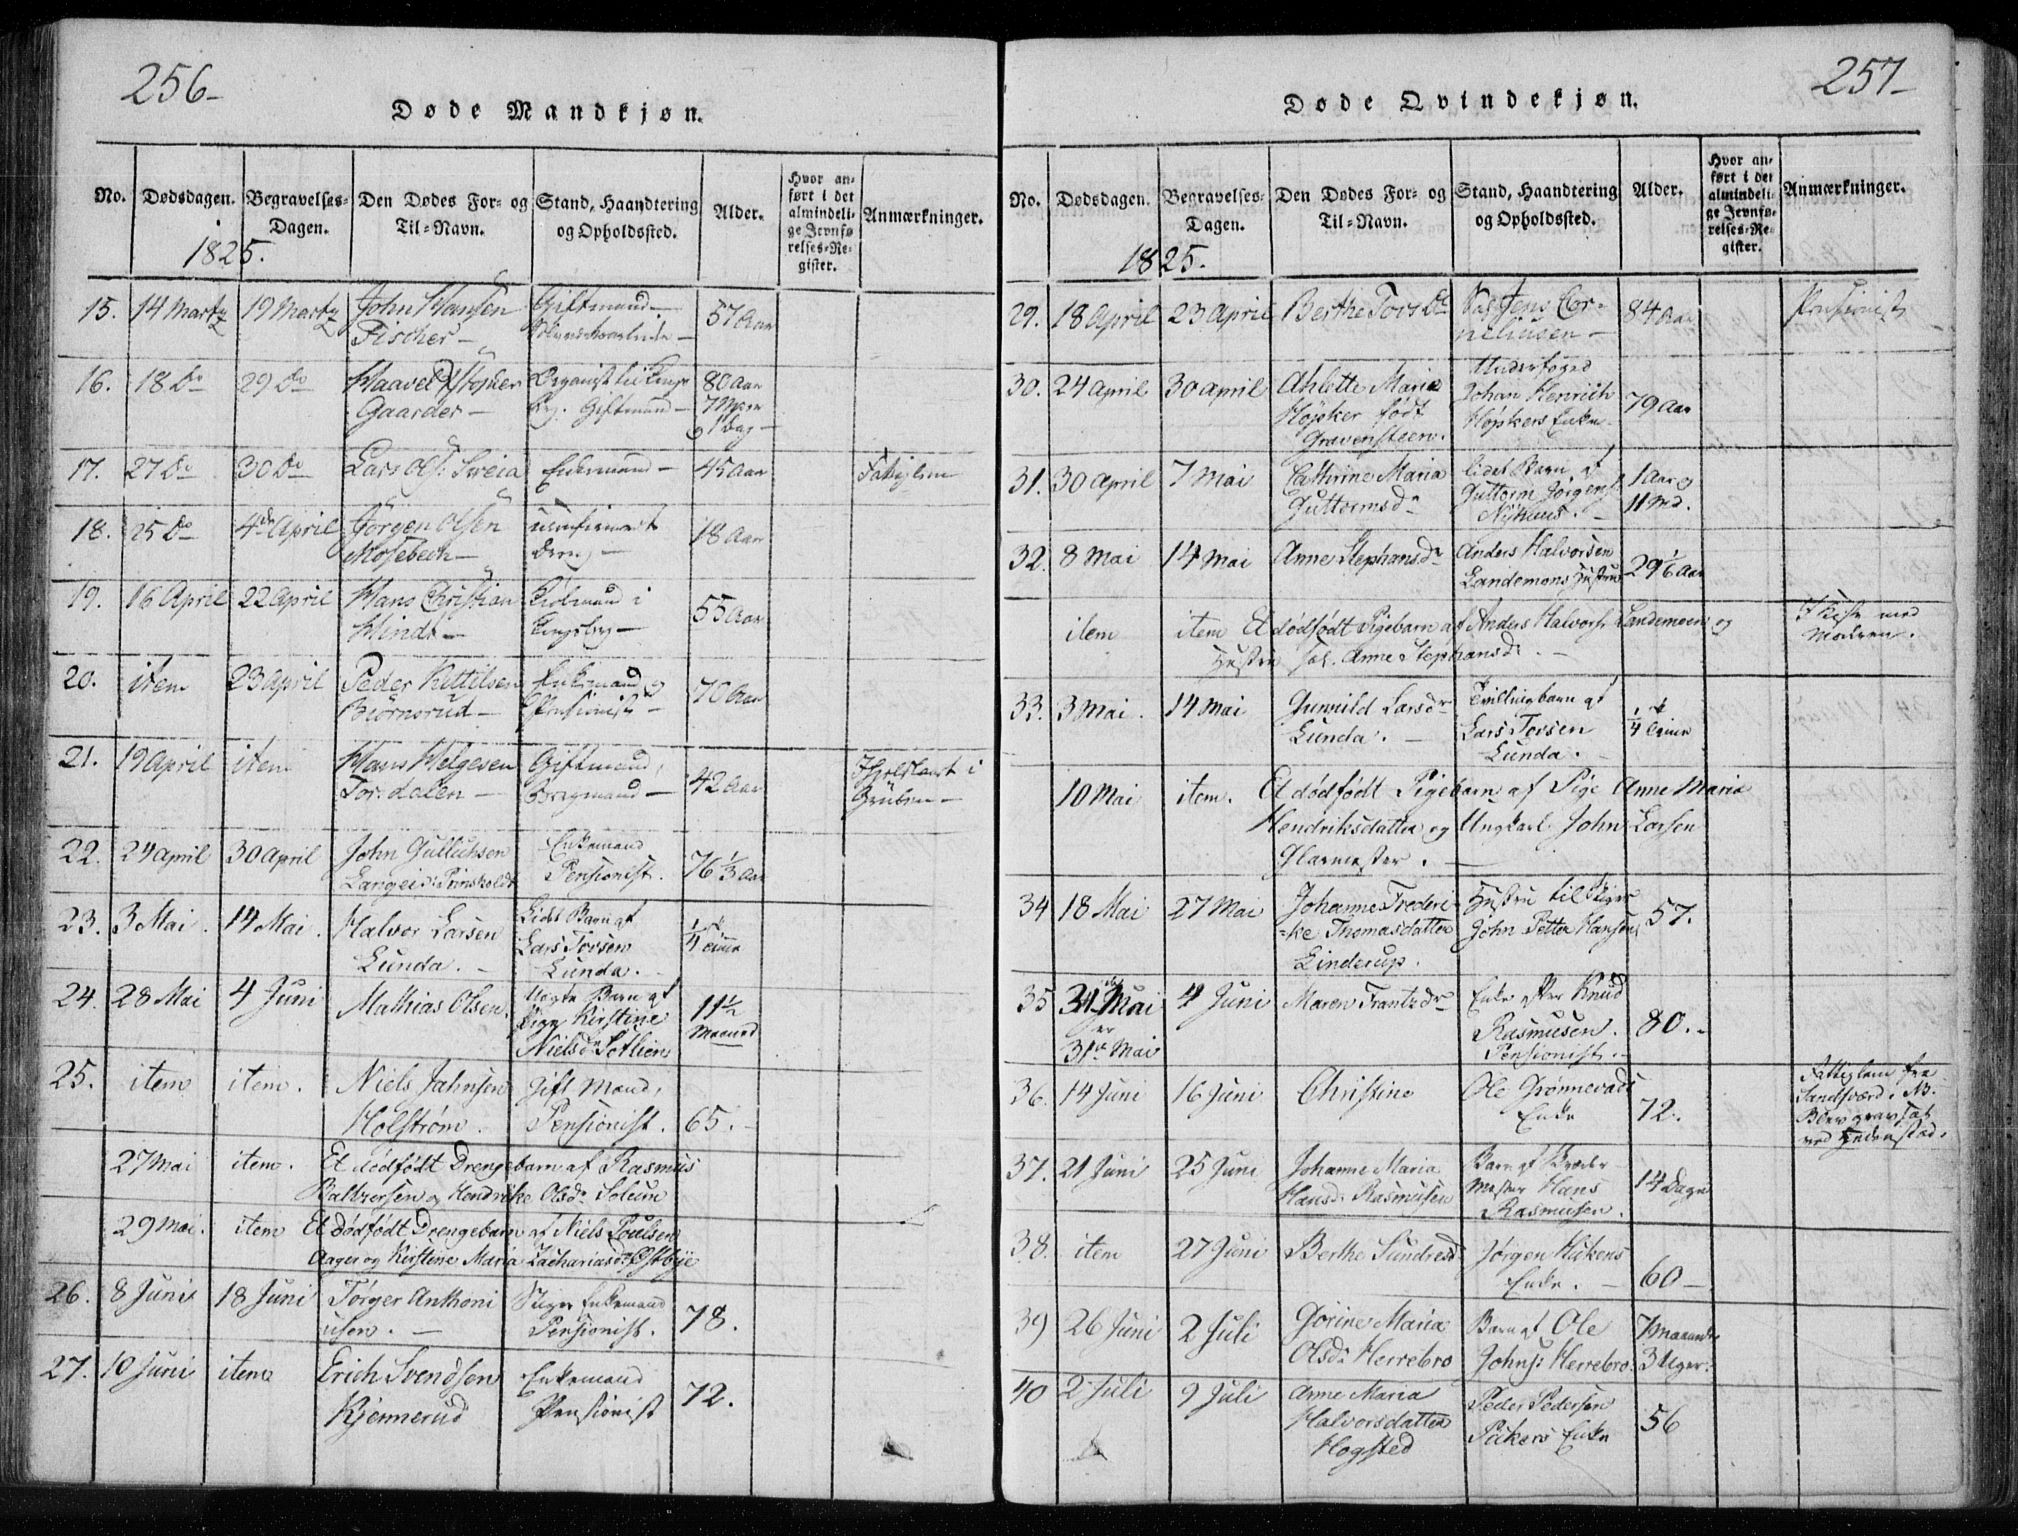 256-
Døde Mandkjøn.
No. Dødsdagen. Begravelses-Dagen. Den Dødes For- og Til-Navn. Stand, Haandtering og Opholdssted. Alder. Hvor anført i det almindelige Jevnførelses-Register. Anmærkninger.
1825.
15. 14 Marty 19 Marty John Hansen Giftmand 57 Aar
Fischer-
16. 18 Do 29 Do Haavel Gaarder- Organist Giftmand- 80 Aar
1 Dag-
17. 27 Do 30 Do Lars Ols: Enkemand- 45 Aar Fattiglem
18. 25 Do 4de April Jørgen Olsen 18 Aar
Mosebech- dreng-
19. 16 April 22 April Hans Christian i 55 Aar
Windt- Kongsberg-
20. item 23 April Peder Kittilsen Enkemand og 70 Aar
Biørnerud- Pensionist-
21. 19 April item Hans Helgesen Giftmand, 42 Aar Ihielslaaet i
Tordalen- Bergmand- Gruben-
22. 24 April 30 April John Gulliksen Enkemand 76 1/3 Aar
Pensionist.
23. 3 Mai. 14 Mai. Halvor Larsen Lidet Barn af 1/4
Lunda.- Lars Tovsen
Lunda.-
24. 28 Mai 4 Juni Mathias Olsen. Uægte Barn af 11 1/2
Pige Kirstine Maaned
Nielsdr
25. item item. Niels Jahnsen Gift Mand, 65.-
Holstrøm. Pensionist.
27 Mai item. Et dødfødt Drengebarn af Rasmus
og Hendrike Olsdr Solum
29 Mai. item Et dødfødt Drengebarn af Niels Poulsen
Aager og Kirstine Maria Zachariasdr Østbye
26. 8 Juni 18 Juni Torger Anthoni Stiger Enkemand 78.
usen.- Pensionist.
27. 10 Juni item Erich Svendsen Enkemand 72.
Kjennerud Pensionist
257-
Døde Qvindekjøn.
No. Dødsdagen. Begravelses-Dagen. Den Dødes For- og Til-Navn. Stand, Haandtering og Opholdssted. Alder. Hvor anført i det almindelige Jevnførelses-Register. Anmærkninger.
1825.
29. 18 April 23 April Berthe Tovsdr Jens Cor- 84 Aar Pensionist
neliusen-
30. 24 April 30 April Ahlette Maria Underfoged 79 Aar
Høpker født Johan Henrich
Gravensteen. Høpkers Enke-
31. 30 April 7 Mai Cathrine Maria lidet Barn af 1 Aar og
Guttormsdr Guttorm Jørgens: 11 Md.
Nyhuus.-
32. 8 Mai 14 Mai Anne Stephansdr Anders Halvorsen 29 1/6 Aar
Landemoens Hustrue
item item Et dødfødt Pigebarn af Anders Halvors: Landemoen og I Kiste med
Hustru Anne Stephansdr.- Moderen.
33. 3 Mai. 14 Mai Gunnild Larsdr Tvillingbarn af 1/4
Lunda.- Lars Tovsen
Lunda.
10 Mai item. Et dødfødt Pigebarn af Pige Anne Maria
Hendriksdatter og Ungkarl John Larsen
Glarmester.-
34 18 Mai 27 Mai Johanne Frederi- Hustru til Stiger 57.
=ke Thomasdatter John Petter Hansen
Linderup.
35 31 Mai 4 Juni Maren Frantzdr Enke efter Knud 80.-
31te Mai Rasmusen.
Pensionist.-
36. 14 Juni 16 Juni Christine Ole Grønnevads 72. Fattiglem fra
Enke Sandsværd. NB.
Blev gravsat
ved Hedenstad.
37. 21 Juni 25 Juni Johanne Maria Barn af Skræder 14 Dage
Hansdr Rasmusen Mester Hans
Rasmusen.
38. item 27 Juni Berthe Jørgen Hakens 60-
Enke.-
39 26 Juni 2 Juli Gorine Maria Barn af Ole 7 maaneder
Olsdr Herrebro Johns: Herrebro 3 Uger.
40 2 Juli 9 Juli Anne Maria Peder Pedersen 56
Halvorsdatter Pukers Enke
Hogsted